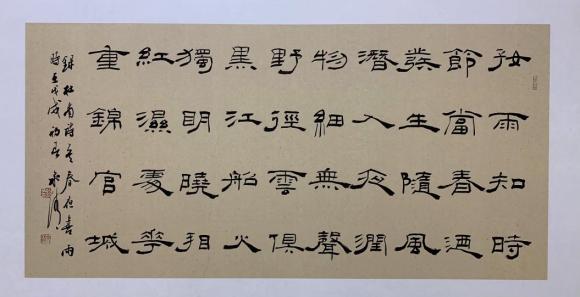 好雨知時
節當春迺
發生隨風
潛入夜潤
物細無聲
野徑雲俱
黑江船火
獨明曉看
紅濕處花
重錦官城
錄杜甫詩春夜喜雨
時